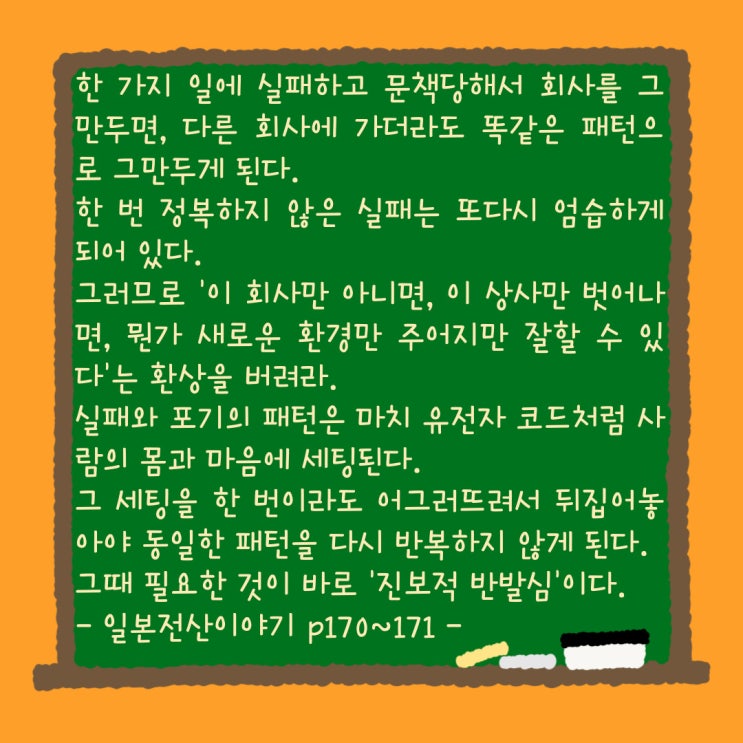 한 가지 일에 실패하고 문책당해서 회사를 그
만두면, 다른 회사에 가더라도 똑같은 패턴으
로 그만두게 된다.
한 번 정복하지 않은 실패는 또다시 엄습하게
되어 있다.
그러므로 '이 회사만 아니면, 이 상사만 벗어나
면, 뭔가 새로운 환경만 주어지만 잘할 수 있
다'는 환상을 버려라.
실패와 포기의 패턴은 마치 유전자 코드처럼 사
람의 몸과 마음에 세팅된다.
그 세팅을 한 번이라도 어그러뜨려서 뒤집어놓
아야 동일한 패턴을 다시 반복하지 않게 된다.
그때 필요한 것이 바로 '진보적 반발심'이다.
- 일본전산이야기 p170~171 -